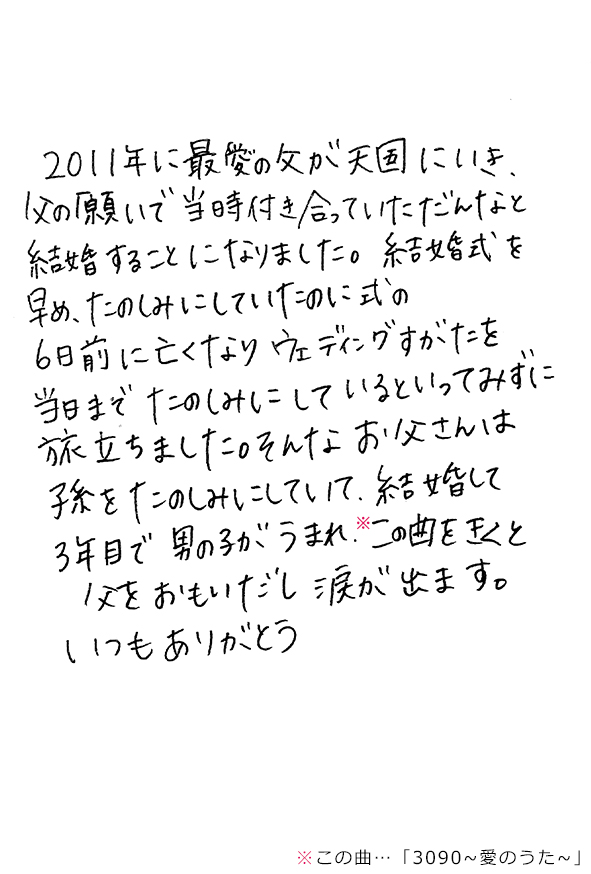 2011年に最愛の父が天国にいき、
父の願いで当時付き合っていただんなと
結婚することになりました。結婚式を
早め、たのしみにしていたのに式の
6日前に亡くなりウェディングすがたを
当日までたのしみにしているといってみずに
旅立ちました。そんなお父さんは
孫をたのしみにしていて、結婚して
3年目で男の子がうまれ、※この曲をきくと
父をおもいだし涙が出ます。
いつもありがとう
※この曲…「3090~愛のうた~」